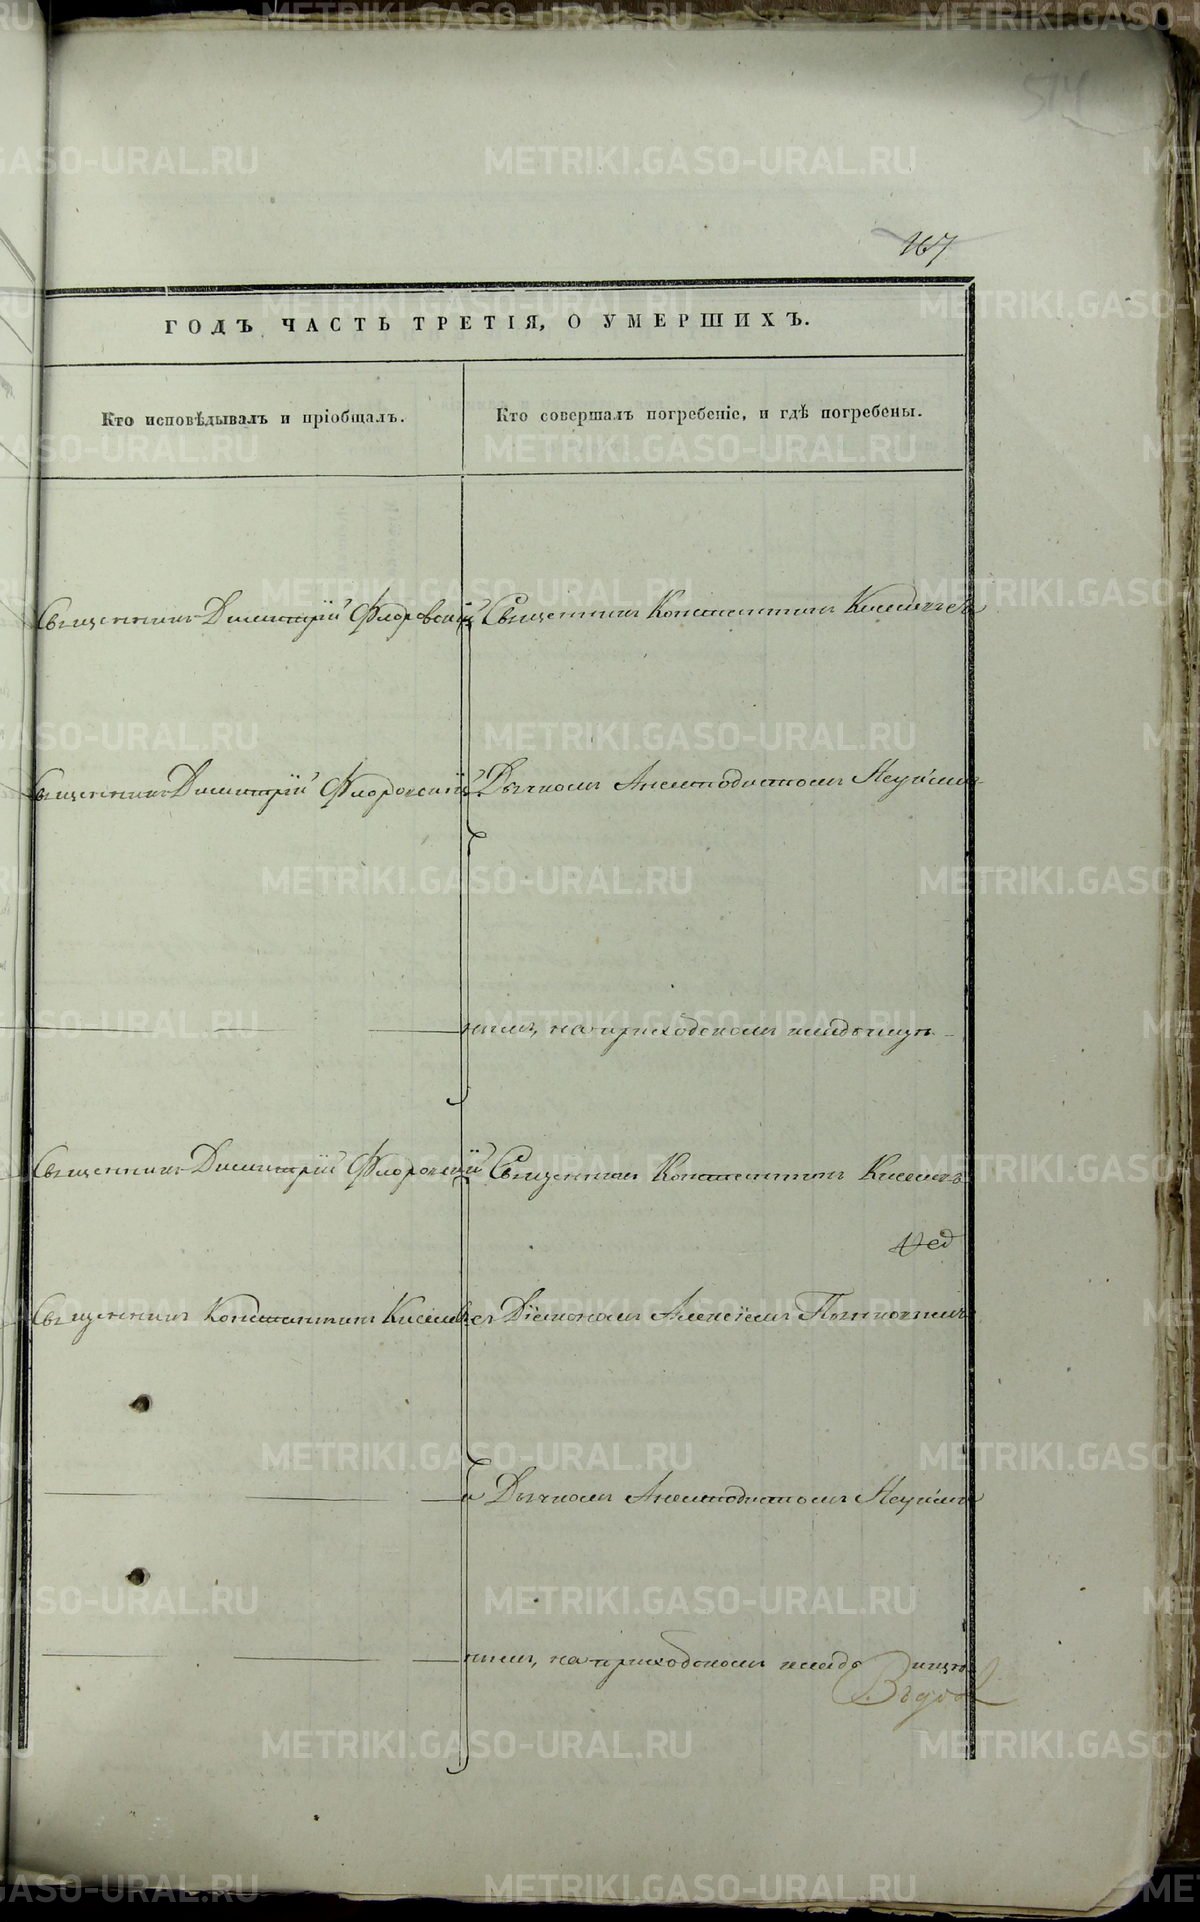 514
167
ГОДЪ ЧАСТЬ ТРЕТІЯ, О УМЕРШИХЪ.
Кто исповѣдывалъ и пріобщалъ.
Кто совершалъ погребеніе, и гдѣ погребены.
Священникъ Димитрій Флоровскій
Священникъ Константинъ Киселевъ съ
Священникъ Димитрій Флоровскій
Дьячкомъ Анемподистомъ Неуйми-
нымъ, на приходскомъ кладбищѣ
Священникъ Димитрій Флоровскій
Священникъ Константинъ Киселевъ
Священникъ Константинъ Киселевъ
съ Діакономъ Алексіемъ
и Дьячкомъ Анемподистомъ Неуйми
нымъ, на приходскомъ кладбищѣ
METRIKI.GASO-URAL.RU